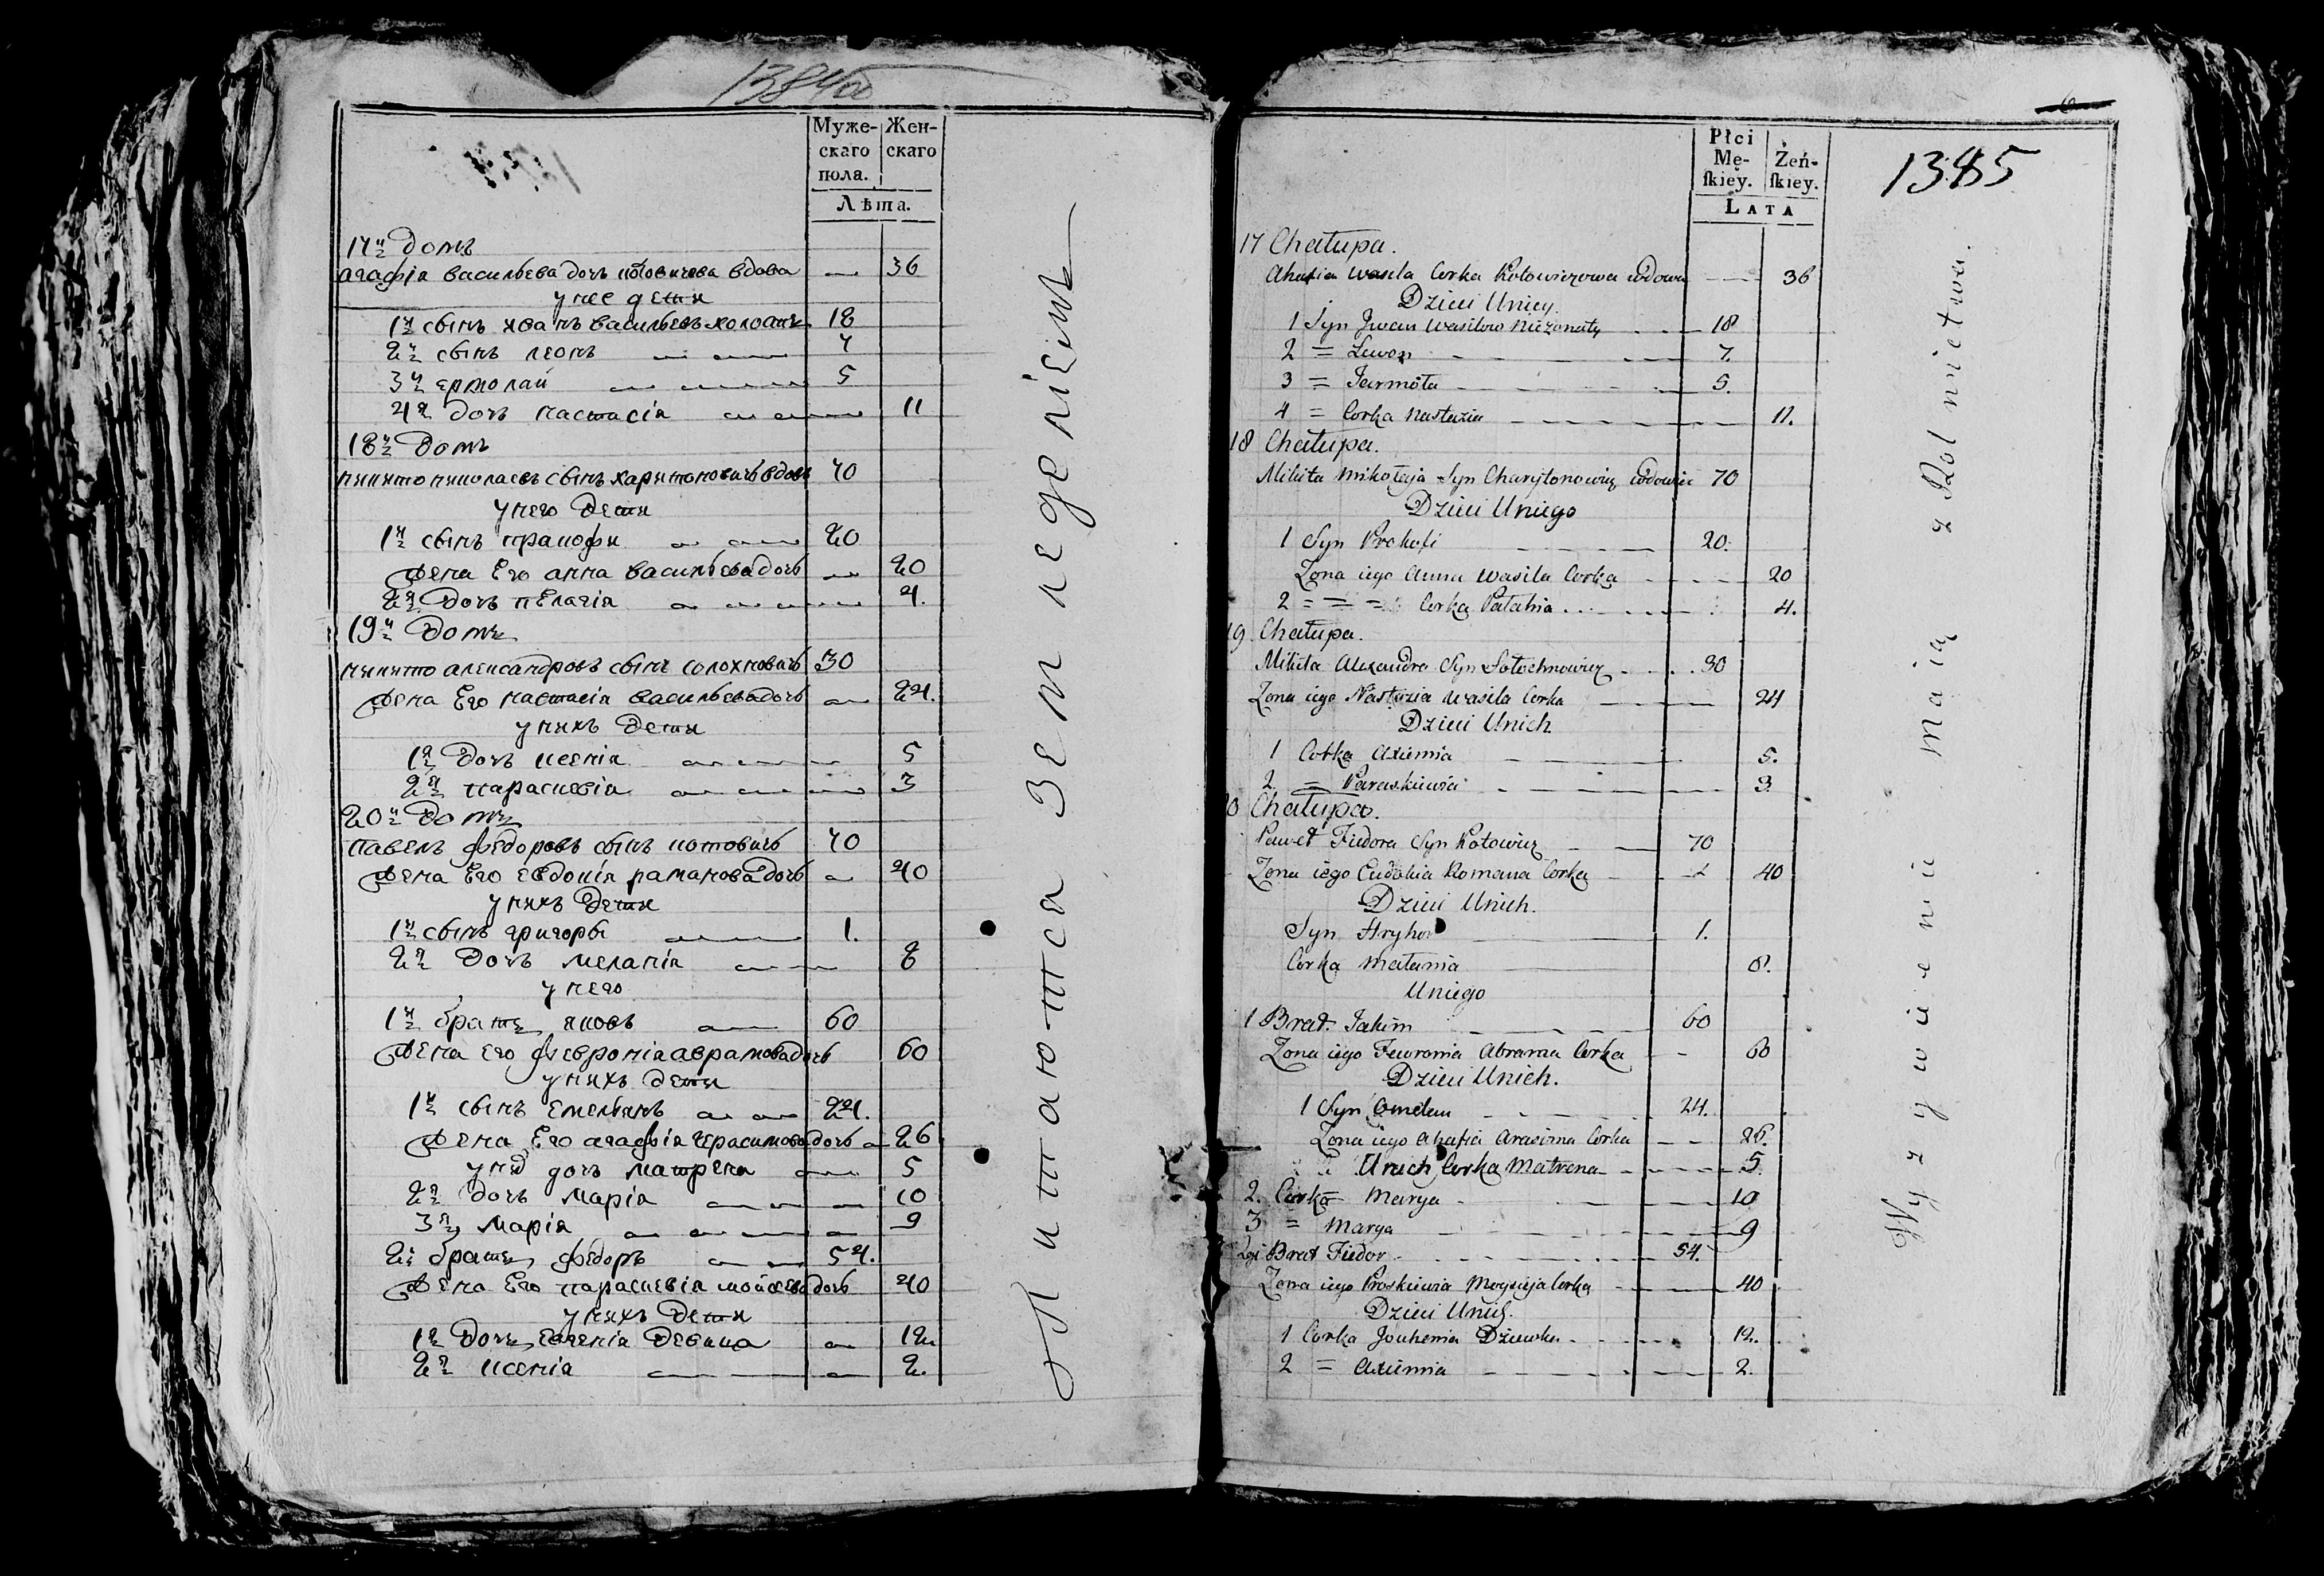 1384об
Муже-
скаго
пола.
Жен-
скаго
Лѣта.
17й Домъ
агафіа васильева дочъ котовичева вдова — 36
унее дети
1й сынъ иванъ васильевъ холостъ 18
2й сынъ леонъ 7
3й ермолай 5
4я дочъ настасіа 11
18й Домъ
никито николаевъ сынъ харитоновичъ вдовъ 70
унего Дети
1й сынъ пракофи 20
жена Его анна васильевадочъ 20
2я Дочъ пЕлагіа 4.
19й Домъ
никито александровъ сынъ солохновичъ 30
жена Его настасіа васильевадочъ 24.
унихъ Дети
1я Дочъ ксеніа 5
2я параскевіа 3
20й Домъ
павелъ федоровъ сынъ котовичъ 70
жена Его евдокіа рамановадочъ 40
унихъ Дети
1й сынъ григорьі 1.
2я Дочъ меланіа 8
унего
1й братъ яковъ 60
жена его февроніа аврамовадочъ 60
унихъ Дети
1й сынъ Емельянъ 24.
жена Его агафіа герасимовадочъ 26
унид дочъ матрена 5
2я дочъ маріа 10
3я маріа 9
2й братъ федоръ 54.
жена Его параскевіа мойсевадочъ 40
унихъ Дети
1я Дочъ евгеніа Девица 12
2я ксеніа 2.
Питаютса Земледеліемъ
6
1385
Płci
Mę-
ſkiey.
Żeń-
ſkiey.
LATA
17 Chałupa.
Ahafia Wasila Corka Kotowiczowa wdowa — 36
Dzieci Uniey.
1 Syn Jwan Wasilow Nieżonaty 18
2 = Lewon 7.
3 = Jarmoła 5.
4 = Corka Nastazia 11.
18 Chałupa.
Mikita Mikołaja Syn Charytonowicz wdowiec 70
Dzieci Uniego
1 Syn Prokofi 20.
Zona iego Anna Wasila Corka 20
2 = = = Corka Pałahia 4.
19 Chałupa.
Mikita Alexandra Syn Sołochnowicz 30
Zona iego Nastazia Wasila Corka 24
Dzieci Unich
1 Corka Axienia 5.
2 = Paraskiewia 3.
20 Chałupa.
Paweł Fiedora Syn Kotowicz 70
Zona iego Eudokia Romana Corka 40
Dzieci Unich.
Syn Hryhor 1.
Corka Małania 8.
Uniego
1 Brat Jakim 60
Zona iego Fewronia Abrama Corka 60
Dzieci Unich.
1 Syn Omelan 24.
Zona iego Ahafia Arasima Corka 26.
Unich Corka Matrena 5.
2. Corka Marya 10
3 = Marya 9
2gi Brat Fiedor 54.
Zona iego Proskiewia Moyzieja Corka 40
Dzieci Unich.
1 Corka Jouhenia Dziewka 12.
2 = Axienia 2.
Wyzywienie maią z Rolnictwa.